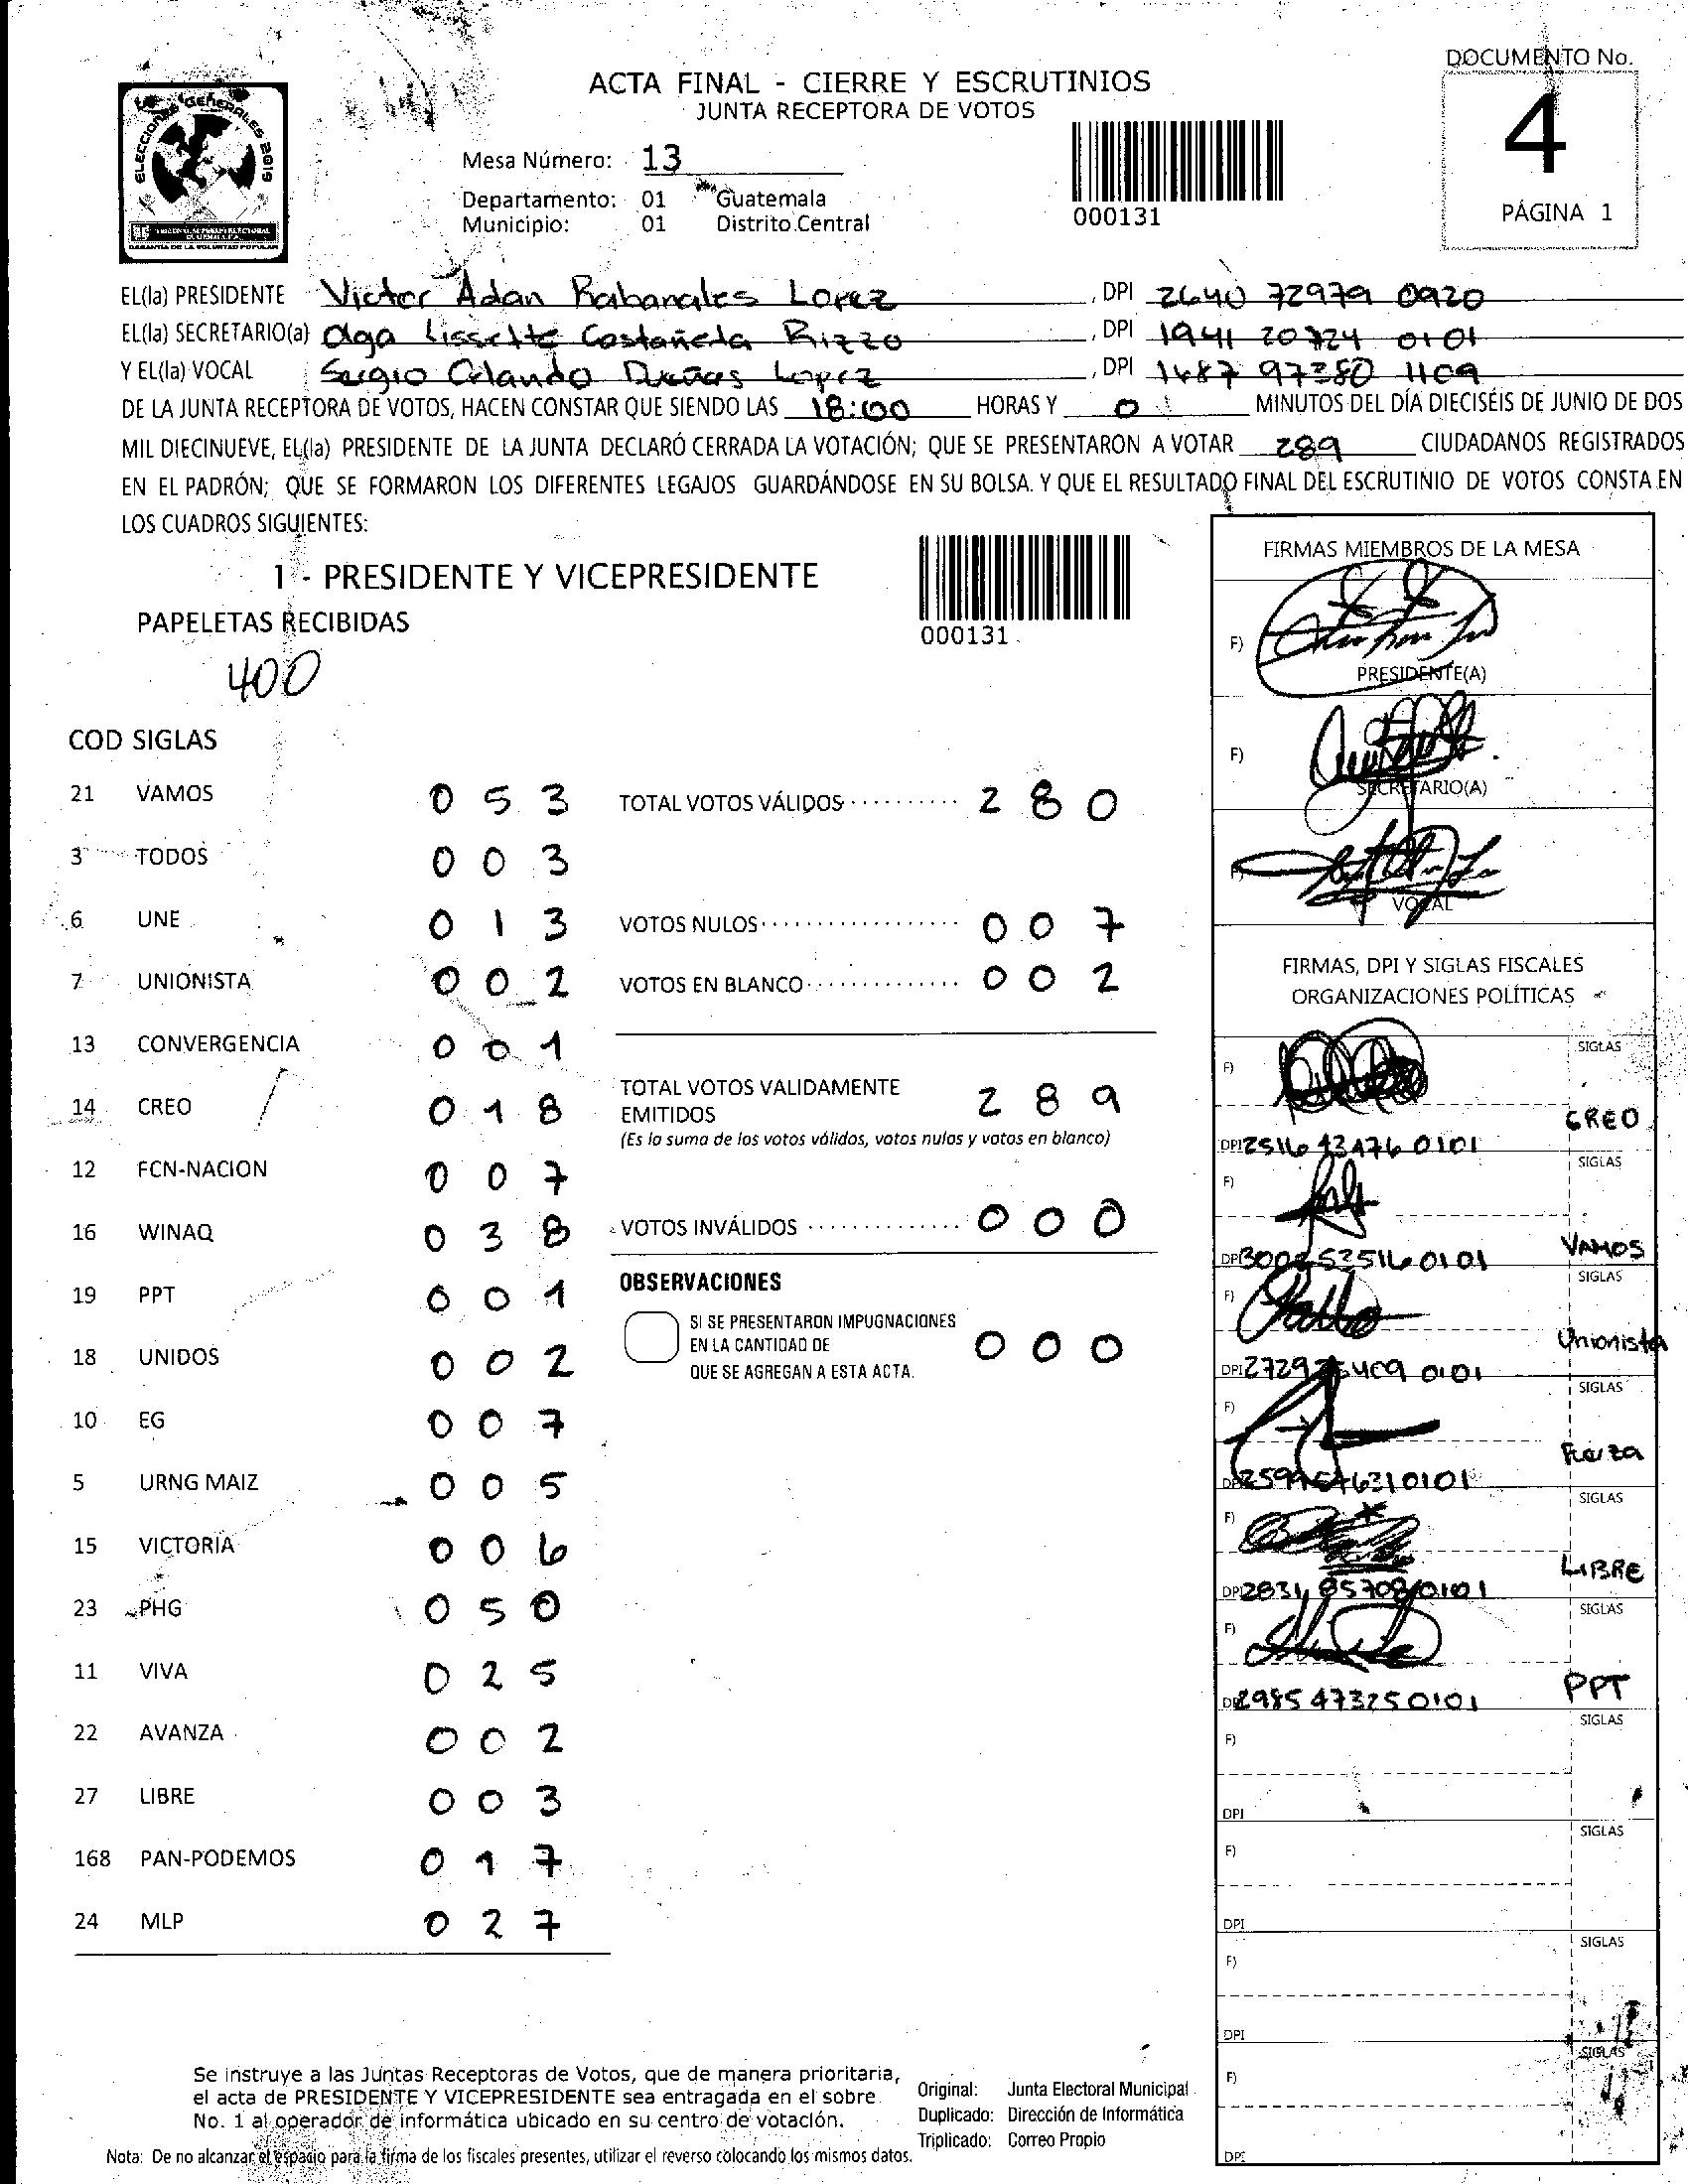 DOCUMENTO No.
4
PÁGINA 1
ELECCIONES GENERALES 2019
GARANTIA DE LA VOLUNTAD POPULAR
ACTA FINAL - CIERRE Y ESCRUTINIOS
JUNTA RECEPTORA DE VOTOS
Mesa Número: 13
Departamento: 01 Guatemala
Municipio: 01 Distrito Central
000131
EL(la) PRESIDENTE Victor Adan Rabanales Lopez , DPI 2640 72979 0920
EL(la) SECRETARIO(a) Olga Lissette Castañeda Rizzo , DPI 1941 20724 0101
Y EL(la) VOCAL Sergio Orlando Dueñas Lopez , DPI 1487 97380 1109
DE LA JUNTA RECEPTORA DE VOTOS, HACEN CONSTAR QUE SIENDO LAS 18:00 HORAS Y 0 MINUTOS DEL DÍA DIECISÉIS DE JUNIO DE DOS
MIL DIECINUEVE, EL(la) PRESIDENTE DE LA JUNTA DECLARÓ CERRADA LA VOTACIÓN; QUE SE PRESENTARON A VOTAR 289 CIUDADANOS REGISTRADOS
EN EL PADRÓN; QUE SE FORMARON LOS DIFERENTES LEGAJOS GUARDÁNDOSE EN SU BOLSA. Y QUE EL RESULTADO FINAL DEL ESCRUTINIO DE VOTOS CONSTA EN
LOS CUADROS SIGUIENTES:
1 - PRESIDENTE Y VICEPRESIDENTE
000131
PAPELETAS RECIBIDAS
400
COD SIGLAS
21 VAMOS 0 5 3
3 TODOS 0 0 3
6 UNE 0 1 3
7 UNIONISTA 0 0 2
13 CONVERGENCIA 0 0 1
14 CREO 0 1 8
12 FCN-NACION 0 0 7
16 WINAQ 0 3 8
19 PPT 0 0 1
18 UNIDOS 0 0 2
10 EG 0 0 7
5 URNG MAIZ 0 0 5
15 VICTORIA 0 0 6
23 PHG 0 5 0
11 VIVA 0 2 5
22 AVANZA 0 0 2
27 LIBRE 0 0 3
168 PAN-PODEMOS 0 1 7
24 MLP 0 2 7
TOTAL VOTOS VÁLIDOS .......... 2 8 0
VOTOS NULOS .................. 0 0 7
VOTOS EN BLANCO .............. 0 0 2
TOTAL VOTOS VALIDAMENTE
EMITIDOS 2 8 9
(Es la suma de los votos válidos, votos nulos y votos en blanco)
VOTOS INVÁLIDOS .............. 0 0 0
OBSERVACIONES
SI SE PRESENTARON IMPUGNACIONES
EN LA CANTIDAD DE 0 0 0
QUE SE AGREGAN A ESTA ACTA.
FIRMAS MIEMBROS DE LA MESA
F)
PRESIDENTE(A)
F)
SECRETARIO(A)
F)
VOCAL
FIRMAS, DPI Y SIGLAS FISCALES
ORGANIZACIONES POLÍTICAS
F) SIGLAS
CREO
DPI 0101
F) SIGLAS
VAMOS
DPI 0101
F) SIGLAS
Unionista
DPI 0101
F) SIGLAS
Fuerza
DPI 0101
F) SIGLAS
LIBRE
DPI 2831 85708 0101
F) SIGLAS
PPT
DPI 2985 47325 0101
F) SIGLAS
DPI
F) SIGLAS
DPI
F) SIGLAS
DPI
F) SIGLAS
DPI
Se instruye a las Juntas Receptoras de Votos, que de manera prioritaria,
el acta de PRESIDENTE Y VICEPRESIDENTE sea entragada en el sobre
No. 1 al operador de informática ubicado en su centro de votación.
Original: Junta Electoral Municipal
Duplicado: Dirección de Informática
Triplicado: Correo Propio
Nota: De no alcanzar el espacio para la firma de los fiscales presentes, utilizar el reverso colocando los mismos datos.